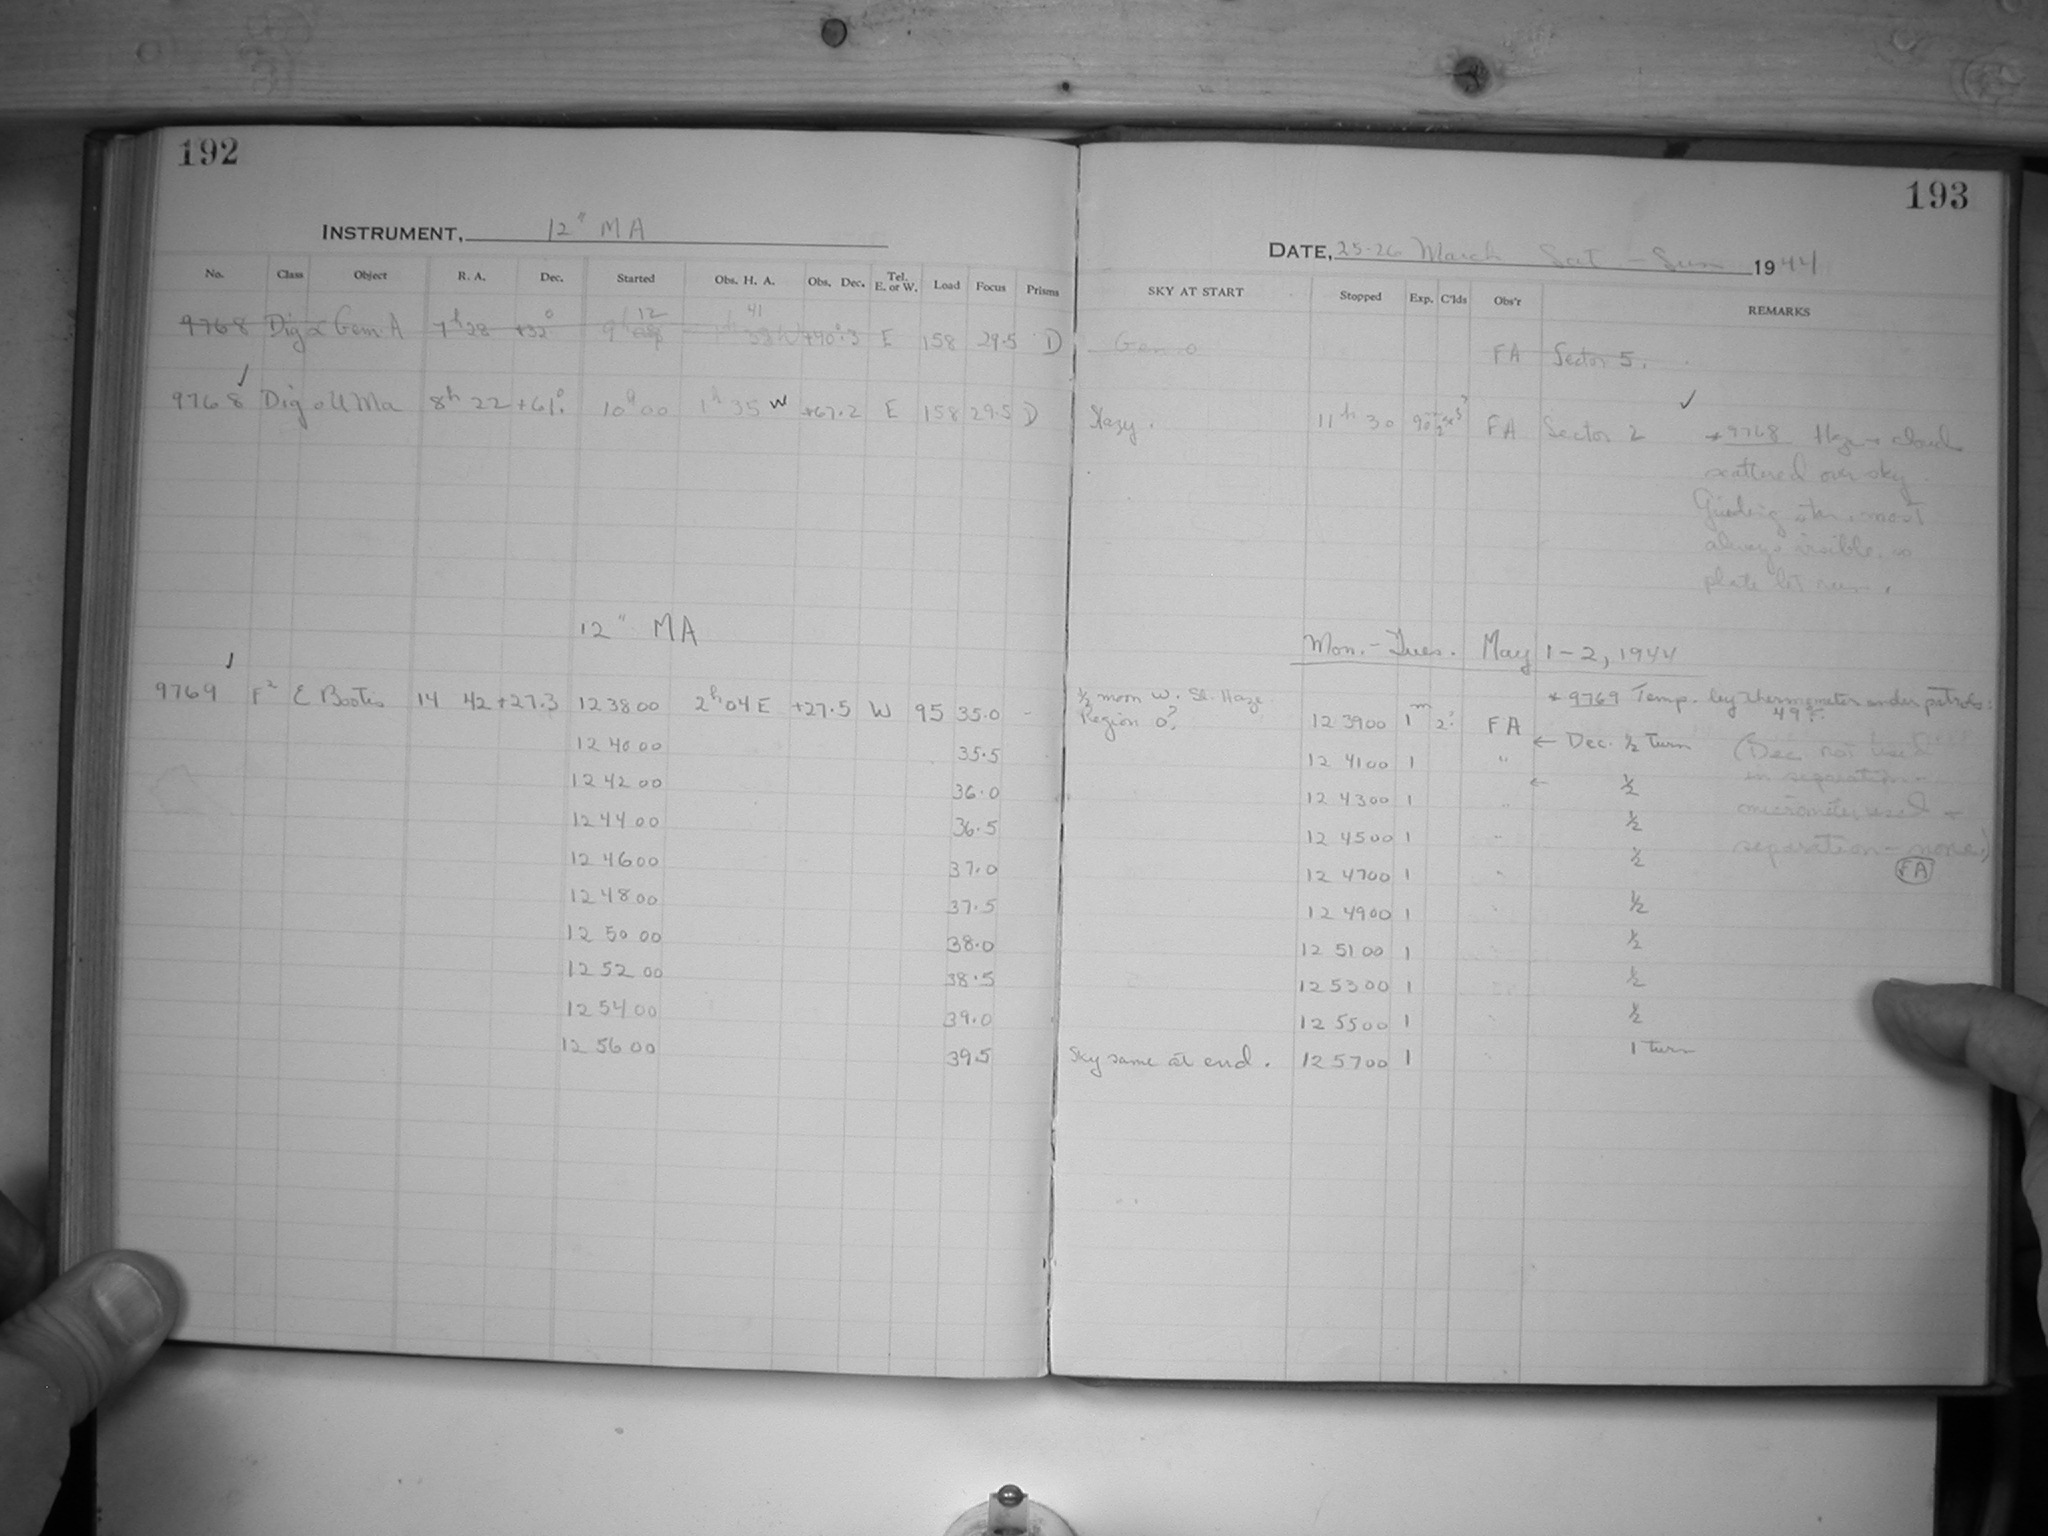 192
INSTRUMENT, 12" MA
No. Class Object R. A. Dec. Started Obs. H. A. Obs. Dec. Tel. E. or W. Load Focus Prisms
9768 Dig α Gem A 7h 28 +32° 9h 12 41 +40°.3 E 158 29.5 D
9768 ✓ Dig o U Ma 8h 22 +61° 10h 00 1h 35 W +67.2 E 158 29.5 D
12" MA
9769 ✓ F² ε Bootis 14 42 +27.3 12 38 00 2h 04 E +27.5 W 95 35.0 -
12 40 00 35.5
12 42 00 36.0
12 44 00 36.5
12 46 00 37.0
12 48 00 37.5
12 50 00 38.0
12 52 00 38.5
12 54 00 39.0
12 56 00 39.5
193
DATE, 25-26 March Sat - Sun 1944
SKY AT START Stopped Exp. C'lds Obs'r REMARKS
FA Sector 5.
Hazy. 11h 30 90 FA Sector 2 ✓ * 9768 Haze + clouds
scattered over sky.
Guiding star most
always visible, so
plate let run.
Mon. - Tues. May 1-2, 1944
½ moon W. Sl. Haze * 9769 Temp. by thermometer under petrols:
Region 0? 12 39 00 1m 2? FA 49°
← Dec. ½ turn (Dec. not used
12 41 00 1 " in separation -
12 43 00 1 " ← ½ micrometer used +
12 45 00 1 " ½ separation - none.)
12 47 00 1 " ½ FA
12 49 00 1 " ½
12 51 00 1 " ½
12 53 00 1 " ½
12 55 00 1 " ½
Sky same at end. 12 57 00 1 " 1 turn